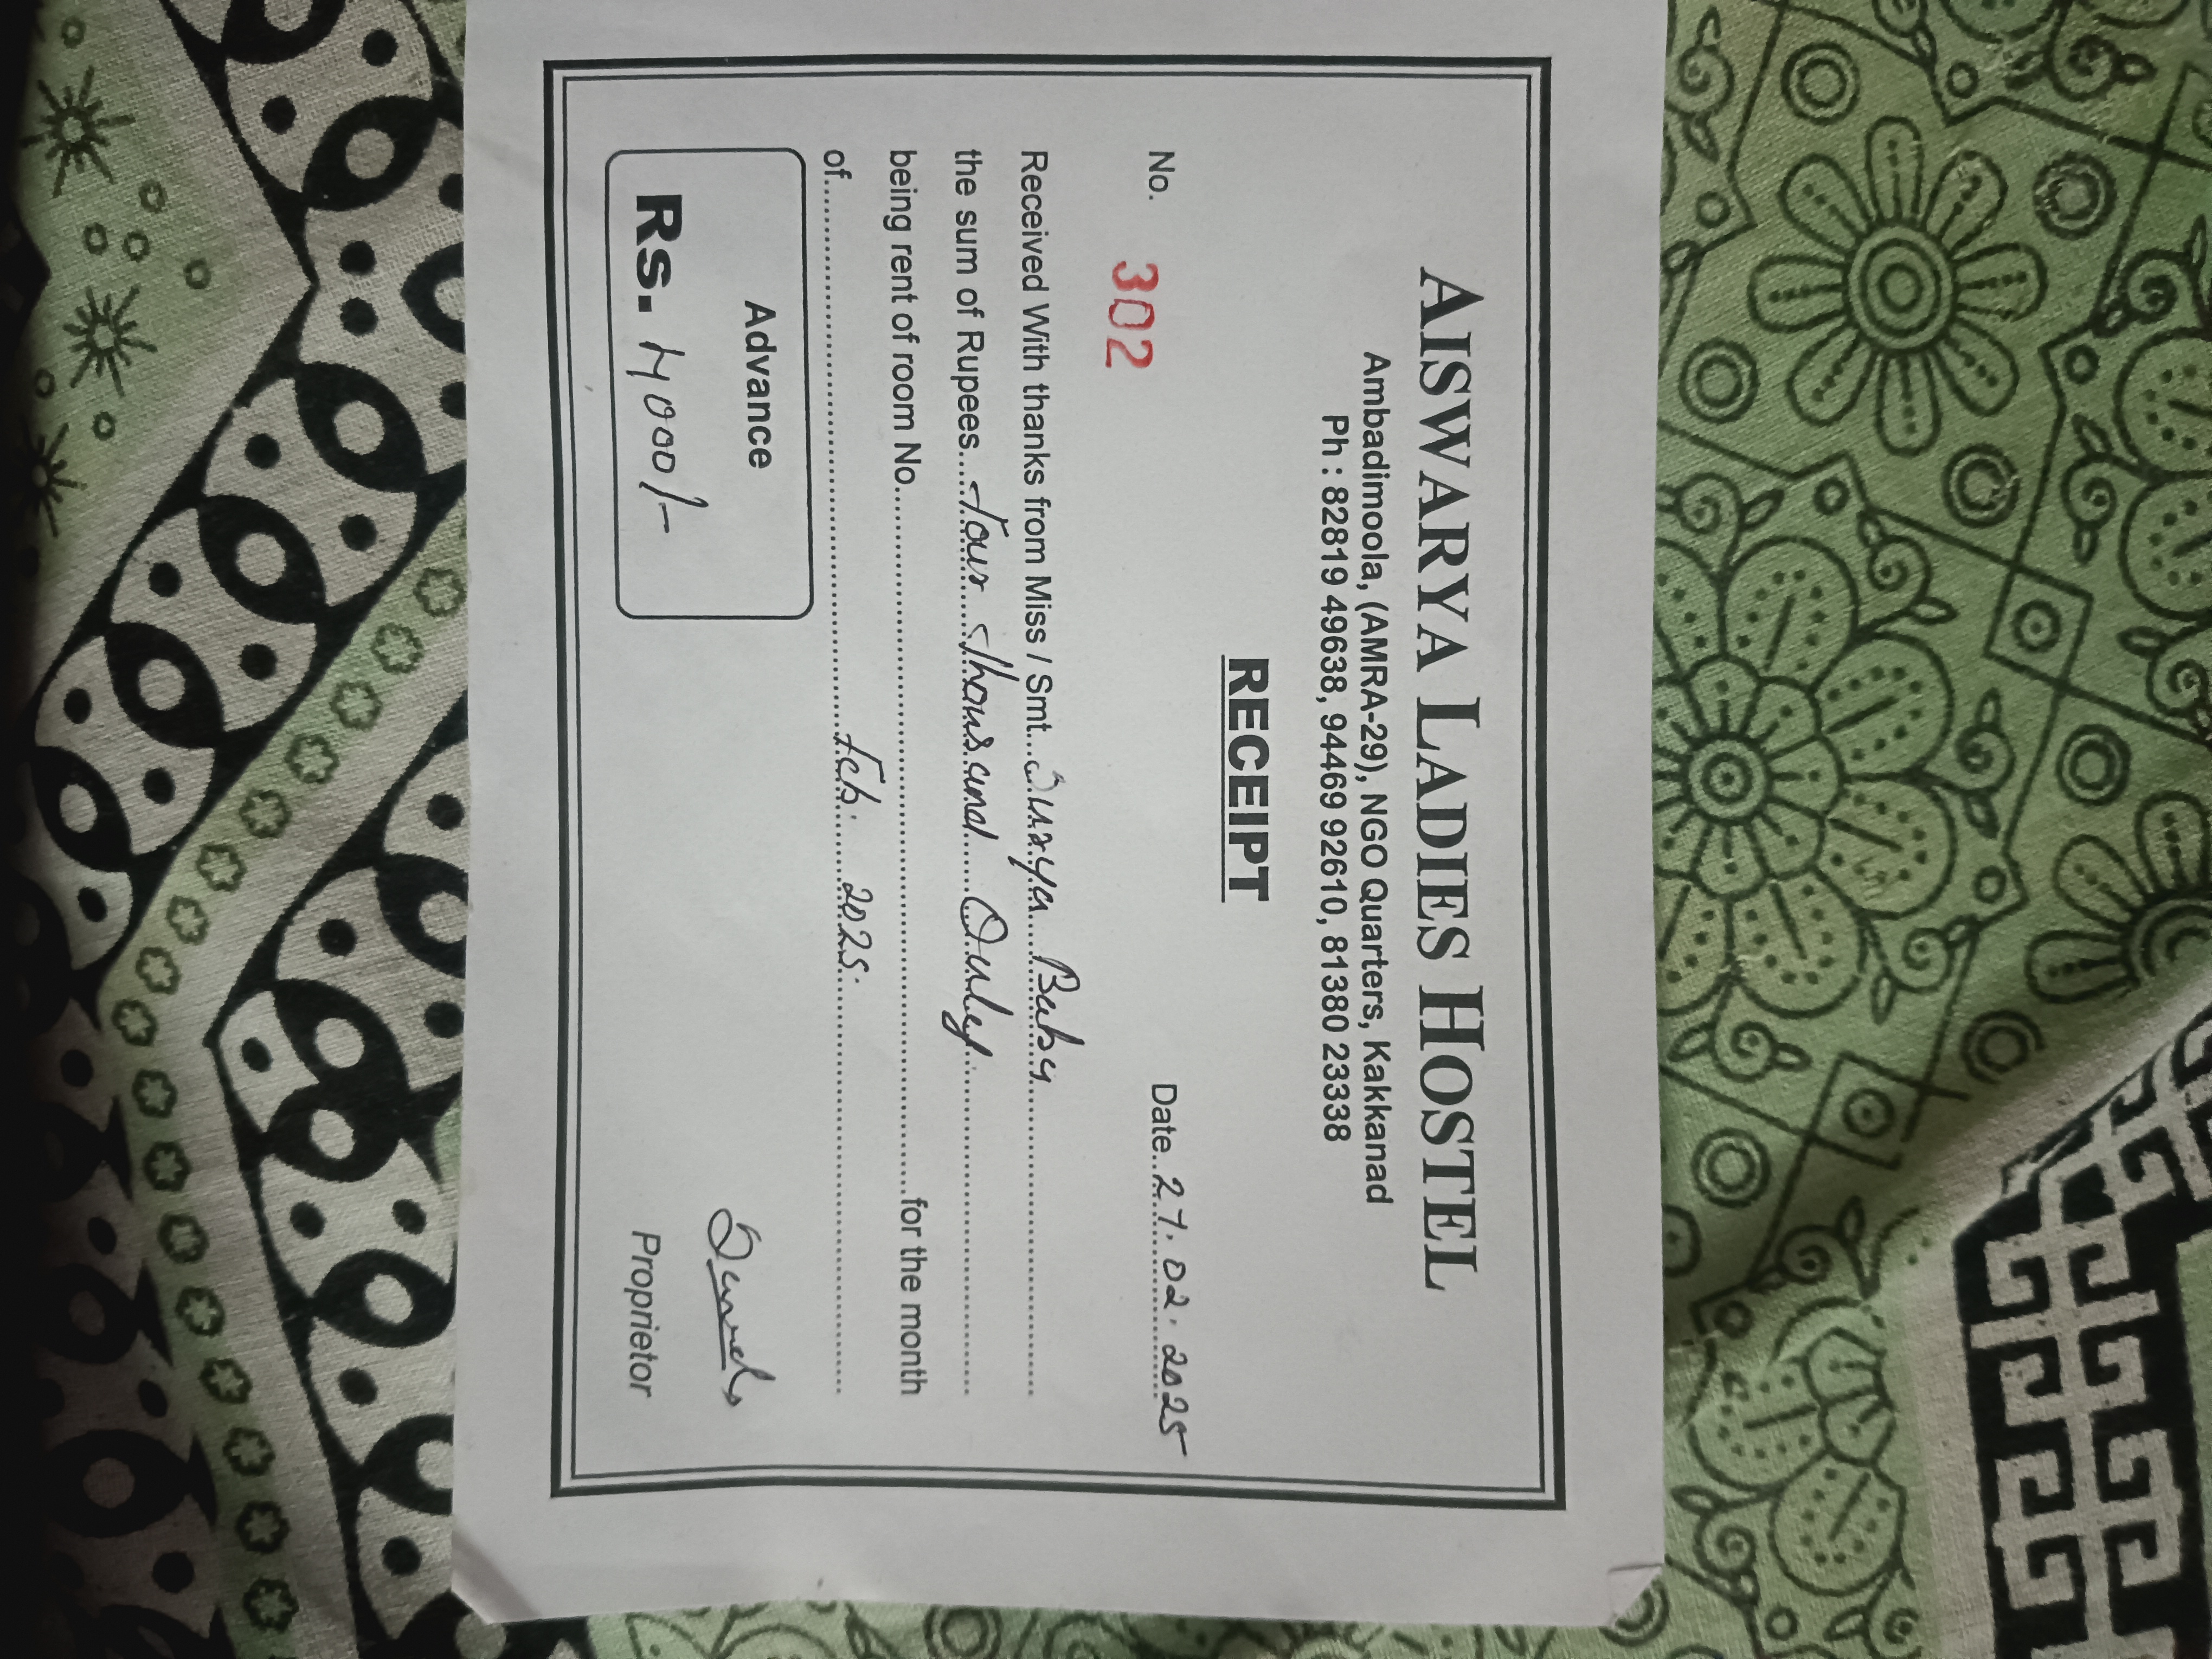 AISWARYA LADIES HOSTEL
Ambadimoola, (AMRA-29), NGO Quarters, Kakkanad
Ph : 82819 49638, 94469 92610, 81380 23338
RECEIPT
No. 302 Date 27.02.2025
Received With thanks from Miss / Smt. Surya Baby
the sum of Rupees Four thousand Only
being rent of room No. for the month
of Feb. 2025.
Advance
Rs. 4000/-
Proprietor